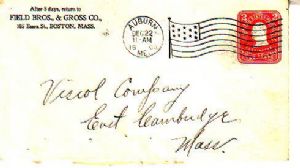 After 5 days, return to
FIELD BROS., & GROSS CO.,
BOSTON, MASS.
AUBURN
DEC 22
11-AM
ME.
2 2
Viscol Company
East Cambridge
Mass.